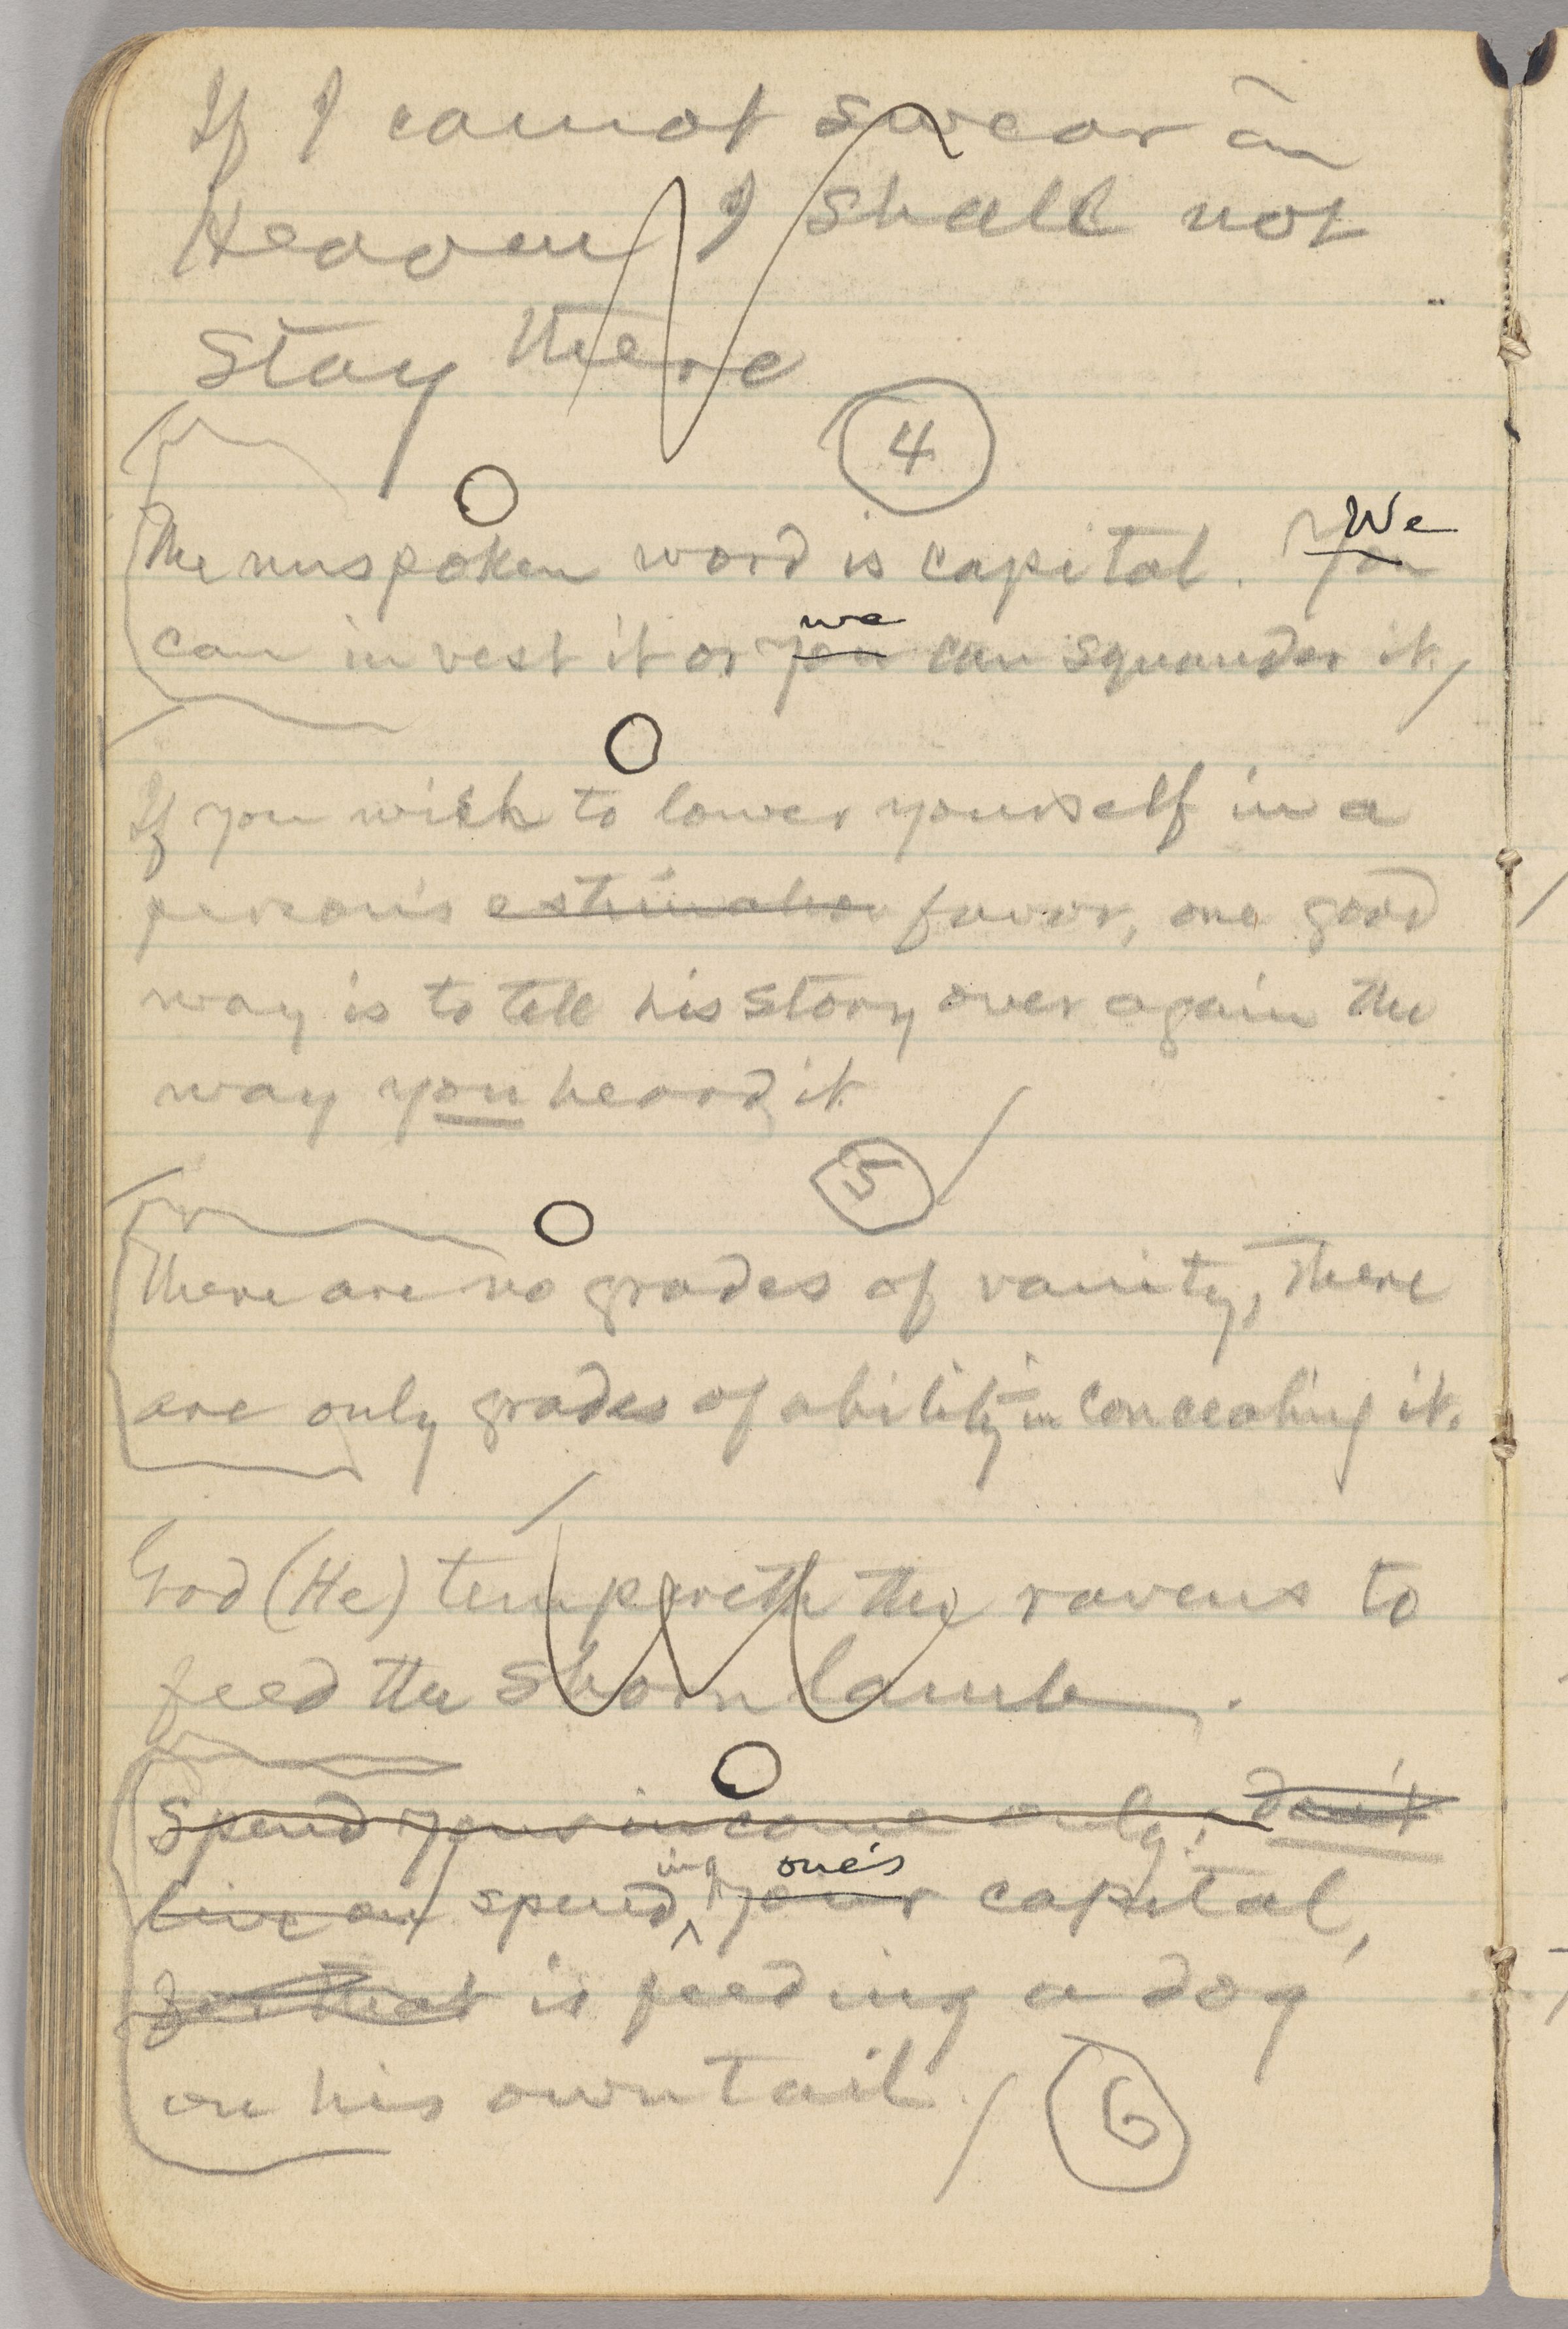 If I cannot swear in
Heaven I shall not
stay there
4
The unspoken word is capital. You We
can invest it or you we can squander it.
If you wish to lower yourself in a
person's estimation favor, one good
way is to tell his story over again the
way you heard it
5
There are no grades of vanity, There
are only grades of ability in concealing it.
God (He) tempereth the ravens to
feed the shorn lamb.
Spend your income only; don't
live on spending your one's capital,
for that is feeding a dog
on his own tail.
6